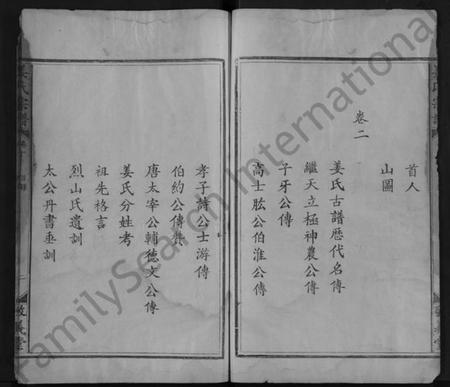 首人
山圖
卷二
姜氏古譜歷代名傳
繼天立極神農公傳
子牙公傳
高士肱公伯淮公傳
孝子詩公士游傳
伯約公傳
唐太宰公輔德文公傳
姜氏分姓考
祖先格言
烈山氏遺訓
太公丹書垂訓
氏宗譜
FamilySearch International